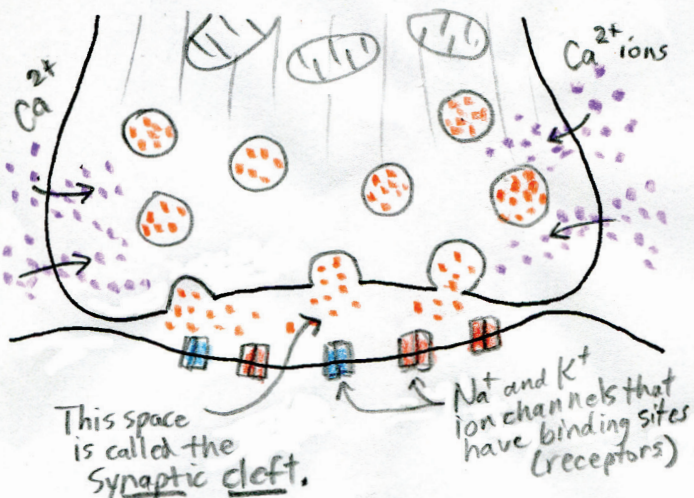 Ca²⁺
Ca²⁺ ions
This space
is called the
Synaptic cleft.
Na⁺ and K⁺
ion channels that
have binding sites
(receptors)